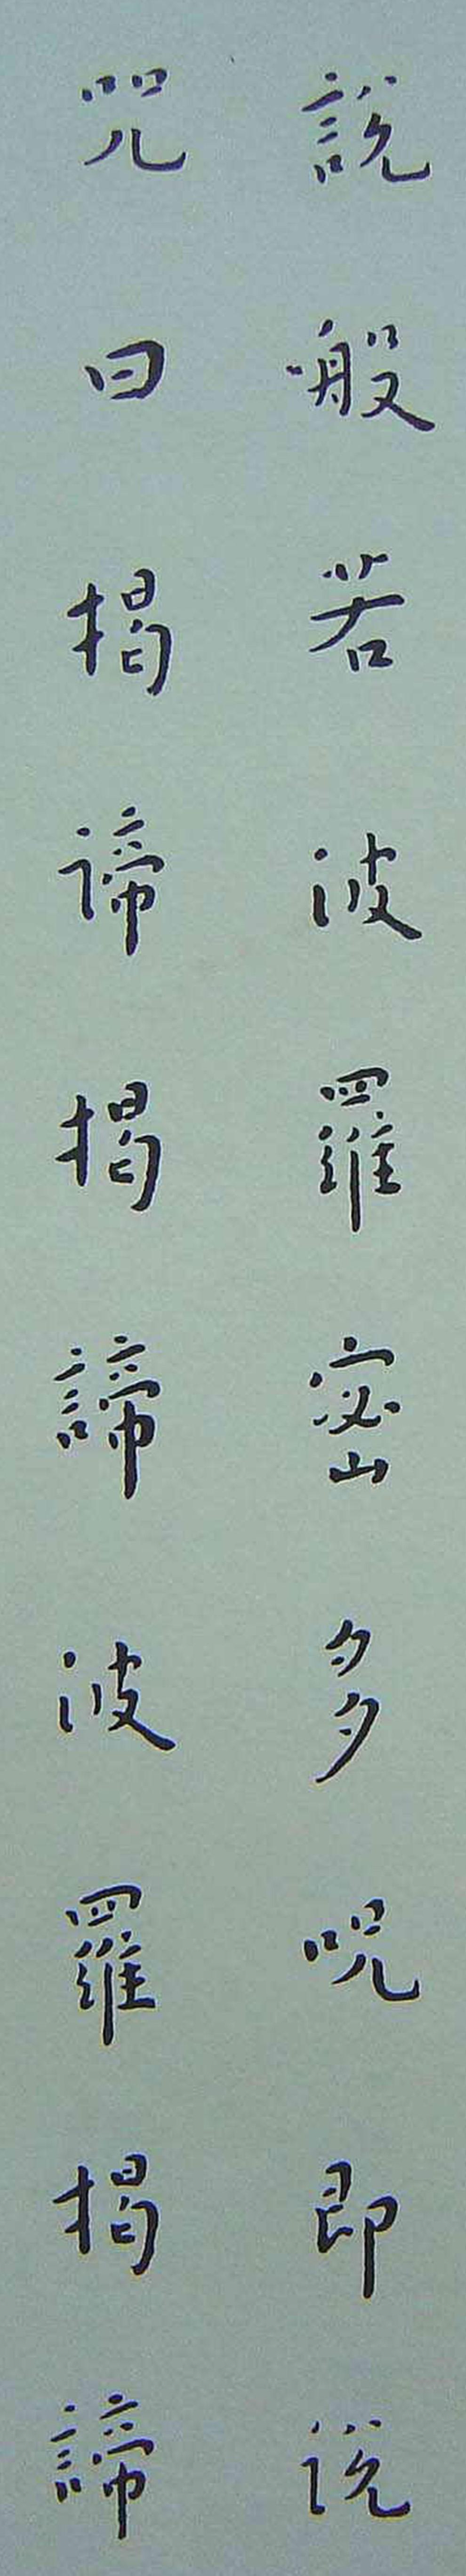 說般若波羅密多呪即说
咒曰揭谛揭諦波羅揭諦